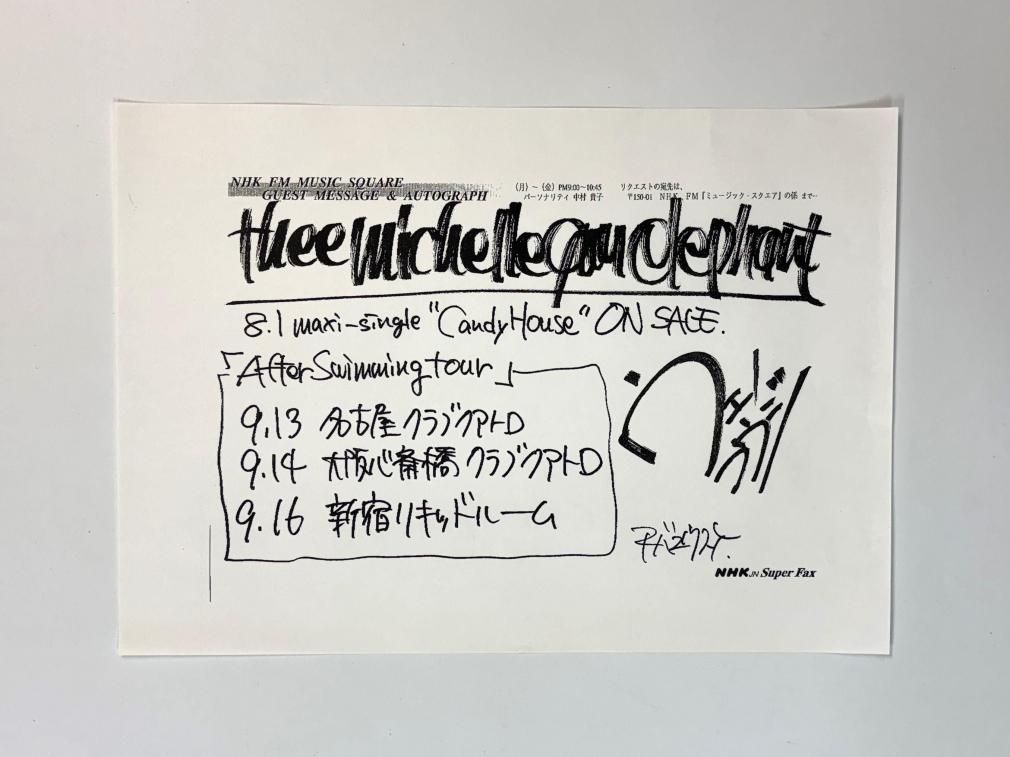 NHK FM MUSIC SQUARE
GUEST MESSAGE & AUTOGRAPH
(月)～(金) PM9:00～10:45
パーソナリティ 中村 貴子
リクエストの宛先は、
〒150-01 NHK FM『ミュージック・スクエア』の係 まで…
thee michelle gun elephant
8.1 maxi-single "Candy House" ON SALE.
「After Swimming tour」
9.13 名古屋クラブクアトロ
9.14 大阪心斎橋クラブクアトロ
9.16 新宿リキッドルーム
NHK JN Super Fax